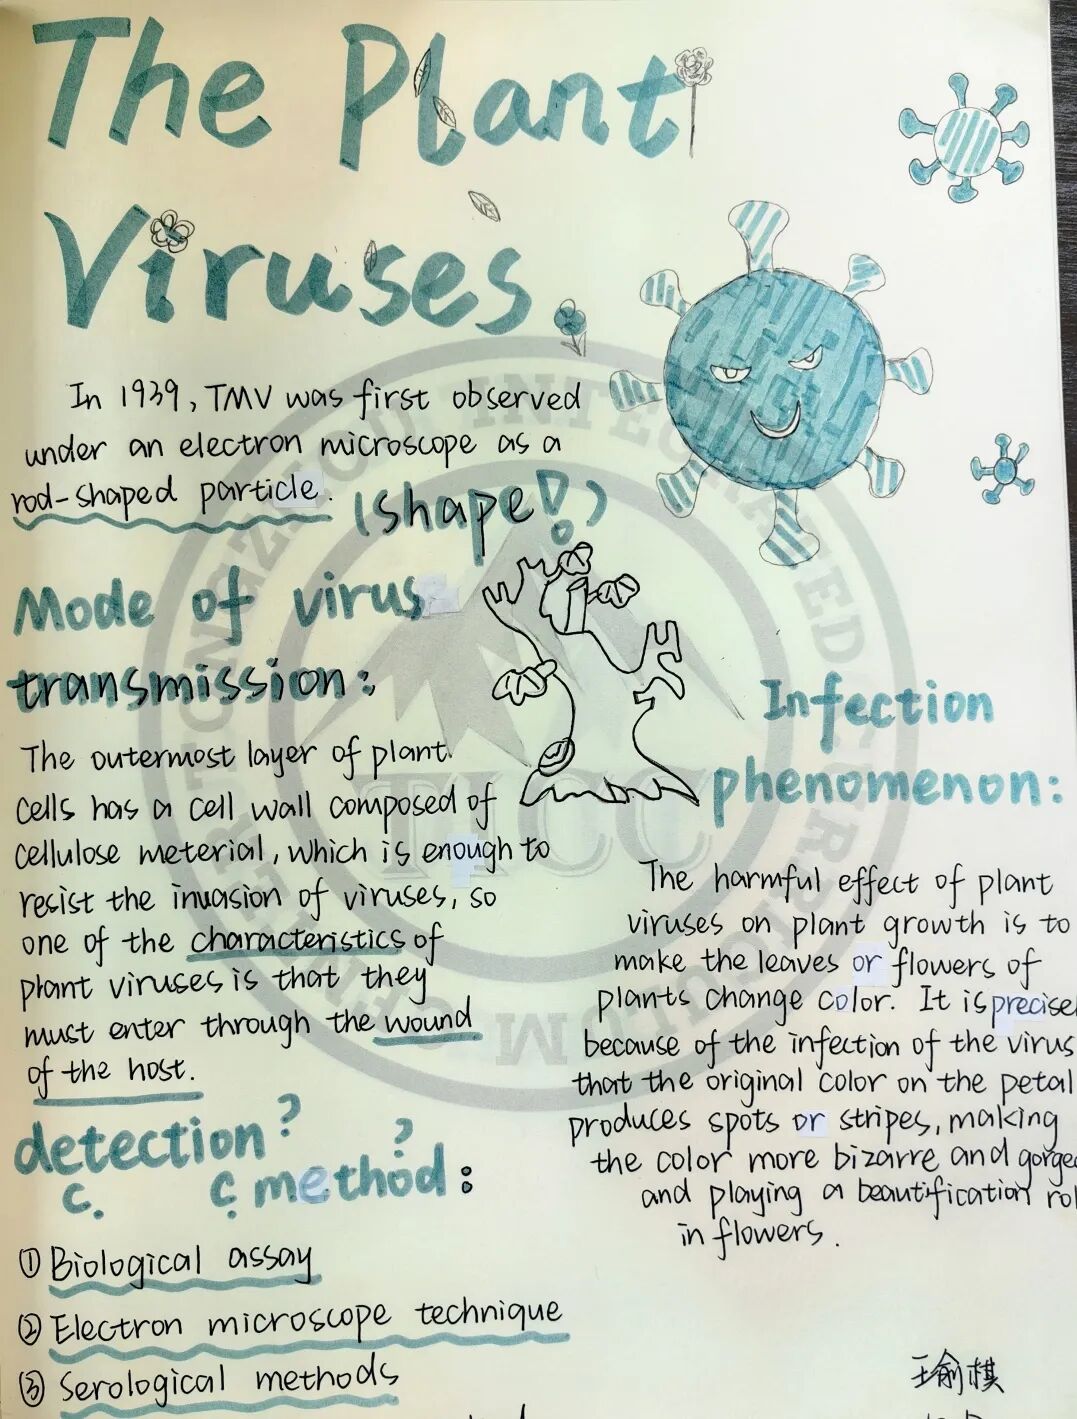 The Plant
Viruses
In 1939, TMV was first observed
under an electron microscope as a
rod-shaped particle.
(shape!?)
Mode of virus
transmission:
The outermost layer of plant
cells has a cell wall composed of
cellulose meterial, which is enough to
resist the invasion of viruses, so
one of the characteristics of
plant viruses is that they
must enter through the wound
of the host.
Infection
phenomenon:
The harmful effect of plant
viruses on plant growth is to
make the leaves or flowers of
plants change color. It is precise
because of the infection of the virus
that the original color on the petal
produces spots or stripes, making
the color more bizarre and gorge
and playing a beautification rol
in flowers.
detection?
method:
① Biological assay
② Electron microscope technique
③ Serological methods
王瑜棋
TONGZHOU INTEGRATED CURRICULUM CENTER
TICC